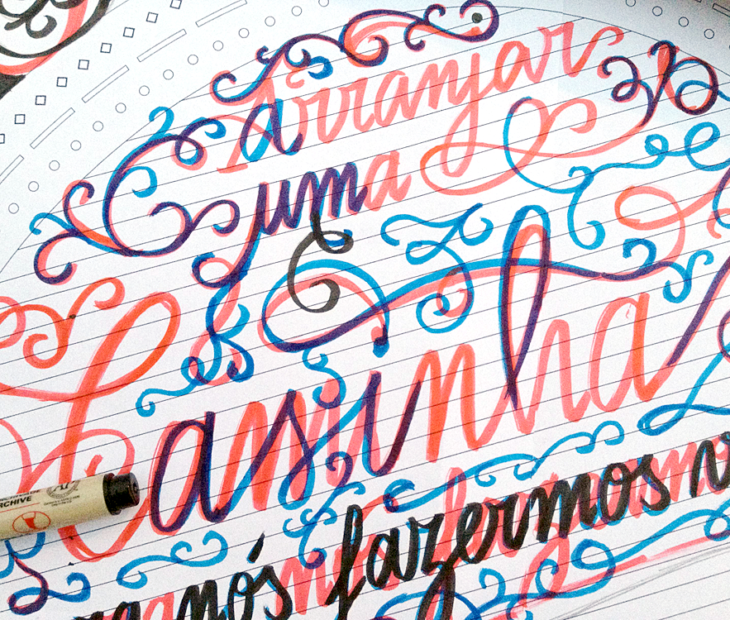 Arranjar
uma
Casinha
nós fazermos
ARCHIVE